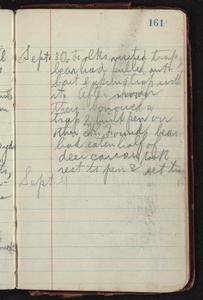 161
Sept. 30, Folks visited trap,
bear had pulled out
bait & upset trap with
it. After noon
they borrowed a
trap & built pen on
other cor, found bear
had eaten half of
deer carcass took
rest to pen & set trap
Sept. 11